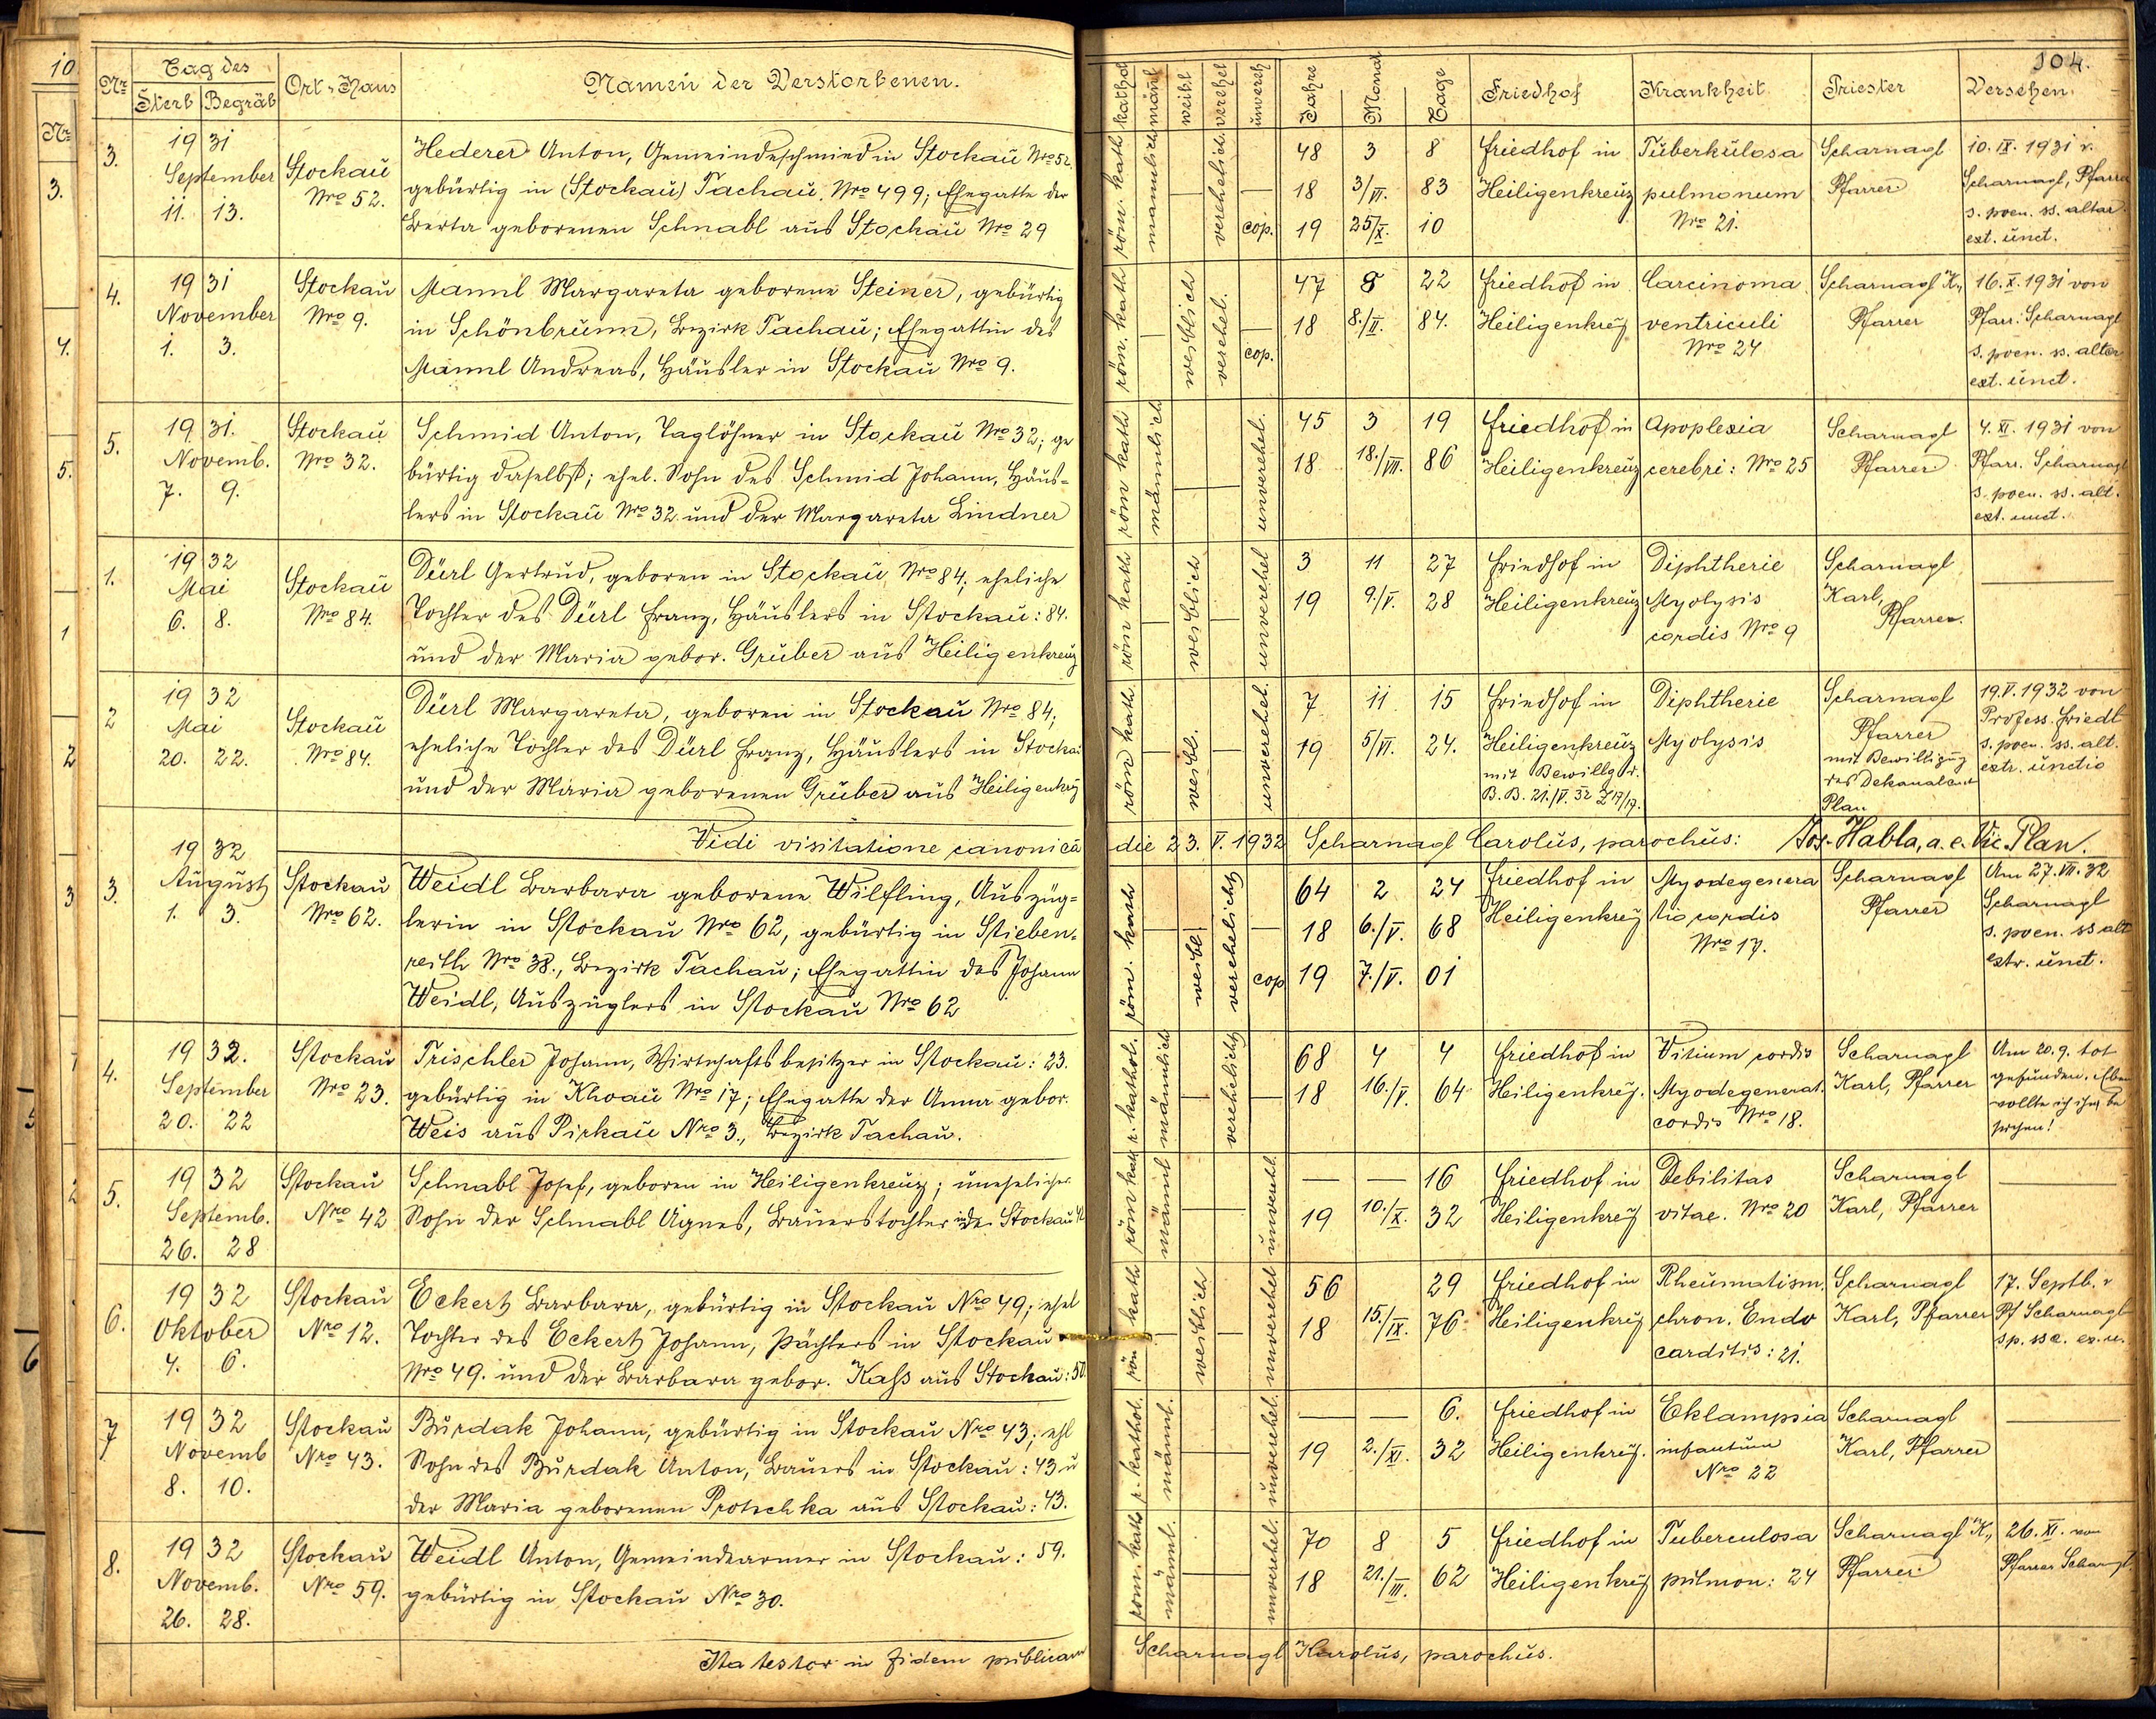 104.
Nr
Tag des
Sterb Begräb
Ort, Haus
Namen der Verstorbenen.
kathol männl weibl verehel unvereh
Jahre Monat Tage
Friedhof
Krankheit
Priester
Versehen
3.
19 31
September
11. 13.
Stockau
Nro 52.
Hederer Anton, Gemeindeschmied in Stockau Nro 52.
gebürtig in (Stockau) Tachau, Nro 499; Ehegatte der
Berta geborenen Schnabl aus Stockau Nro 29
röm. kath männlich verehelich. cop.
48 3 8
18 3/VI. 83
19 25/X. 10
Friedhof in
Heiligenkreuz
Tüberkülosa
pulmonum
Nro 21.
Scharnagl
Pfarrer
10. IX. 1931 v.
Scharnagl, Pfarrer
s. poen. ss. altar.
ext. unct.
4.
19 31
November
1. 3.
Stockau
Nro 9.
Mannl Margareta geborene Steiner, gebürtig
in Schönbrunn, Bezirk Tachau; Ehegattin des
Mannl Andreas, Häusler in Stockau Nro 9.
röm. kath weiblich verehel. cop.
47 8 22
18 8./II. 84.
Friedhof in
Heiligenkreuz
Carcinoma
ventriculi
Nro 24
Scharnagl K.,
Pfarrer
16. X. 1931 von
Pfarr. Scharnagl
s. poen. ss. altar
ext. unct.
5.
19 31.
Novemb.
7. 9.
Stockau
Nro 32.
Schmid Anton, Taglöhner in Stockau Nro 32; ge
bürtig daselbst; ehel. Sohn des Schmid Johann, Häus-
lers in Stockau Nro 32 und der Margareta Lindner
röm kath männlich unverehel.
45 3 19
18 18./VII. 86
Friedhof in
Heiligenkreuz
Apoplexia
cerebri: Nro 25
Scharnagl
Pfarrer
4. XI. 1931 von
Pfarr. Scharnagl
s. poen. ss. alt.
ext. unct.
1.
19 32
Mai
6. 8.
Stockau
Nro 84.
Dürl Gertrud, geboren in Stockau, Nro 84; eheliche
Tochter des Dürl Franz, Häuslers in Stockau: 84.
und der Maria gebor. Gruber aus Heiligenkreuz
röm kath weiblich unverehel
3 11 27
19 9./V. 28
Friedhof in
Heiligenkreuz
Diphtherie
Myolysis
cordis Nro 9
Scharnagl
Karl,
Pfarrer.
2
19 32
Mai
20. 22.
Stockau
Nro 84.
Dürl Margareta, geboren in Stockau Nro 84;
eheliche Tochter des Dürl Franz, Häuslers in Stockau
und der Maria geborenen Gruber aus Heiligenkrz
röm kath. weibl. unverehel.
7 11 15
19 5/VI. 24.
Friedhof in
Heiligenkreuz
mit Bewillg d.
B. B. 21./V. 32 Z 17/17.
Diphtherie
Myolysis
Scharnagl
Pfarrer
mit Bewilligung
des Dekanalamt
Plan
19. V. 1932 von
Profess. Friedl
s. poen. ss. alt.
extr. unctio
Vidi visitatione canonica die 23. V. 1932 Scharnagl Carolus, parochus: Jos. Habla, a. e. Vic. Plan.
3.
19 32
August
1. 3.
Stockau
Nro 62.
Weidl Barbara geborene Wilfling, Auszüg-
lerin in Stockau Nro 62, gebürtig in Stieben-
reith Nro 38., Bezirk Tachau; Ehegattin des Johann
Weidl, Auszüglers in Stockau Nro 62
röm. kath weibl verehelicht cop
64 2 24
18 6./V. 68
19 7./V. 01
Friedhof in
Heiligenkreuz
Myodegenera
tio cordis
Nro 17.
Scharnagl
Pfarrer
Am 27. VII. 32
Scharnagl
s. poen. ss alt
extr. unct.
4.
19 32.
September
20. 22
Stockau
Nro 23.
Trischler Johann, Wirtschaftsbesitzer in Stockau: 23.
gebürtig in Khoau Nro 17; Ehegatte der Anna gebor.
Weis aus Pirkau Nro 3., Bezirk Tachau.
r. kathol. männlich verehelicht
68 4 4
18 16./V. 64
Friedhof in
Heiligenkrz.
Vitium cordis
Myodegenerat.
cordis Nro 18.
Scharnagl
Karl, Pfarrer
Am 20. 9. tot
gefunden. Eben
wollte ich ihn be
suchen!
5.
19 32
Septemb.
26. 28
Stockau
Nro 42
Schnabl Josef, geboren in Heiligenkreuz; unehelicher
Sohn der Schnabl Agnes, Bauerstochter in Stockau 42
röm kath männl unverehl.
16
19 10./X. 32
Friedhof in
Heiligenkrz
Debilitas
vitae. Nro 20
Scharnagl
Karl, Pfarrer
6.
19 32
Oktober
4. 6.
Stockau
Nro 12.
Eckert Barbara, gebürtig in Stockau Nro 49; ehel
Tochter des Eckert Johann, Pächters in Stockau
Nro 49. und der Barbara gebor. Kass aus Stockau: 50.
röm kath weiblich unverehel
56 29
18 15./IX. 76
Friedhof in
Heiligenkrz
Rheumatism.
chron. Endo
carditis: 21.
Scharnagl
Karl, Pfarrer
17. Septb. v
Pf Scharnagl
s p. ss a. ex. u.
7
19 32
Novemb
8. 10.
Stockau
Nro 43.
Burdak Johann, gebürtig in Stockau Nro 43; ehl
Sohn des Burdak Anton, Bauers in Stockau: 43 u
der Maria geborenen Protschka aus Stockau: 43.
r. kathol. männl. unverehel.
6.
19 2./XI. 32
Friedhof in
Heiligenkrz.
Eklampsia
infantum
Nro 22
Scharnagl
Karl, Pfarrer
8.
19 32
Novemb.
26. 28.
Stockau
Nro 59.
Weidl Anton, Gemeindearmer in Stockau: 59.
gebürtig in Stockau Nro 30.
röm. kath männl. unverehel.
70 8 5
18 21./III. 62
Friedhof in
Heiligenkrz
Tuberculosa
pulmon: 24
Scharnagl K.,
Pfarrer
26. XI. von
Pfarrer Scharngl.
Ita testor in fidem publicam Scharnagl Karolus, parochus.